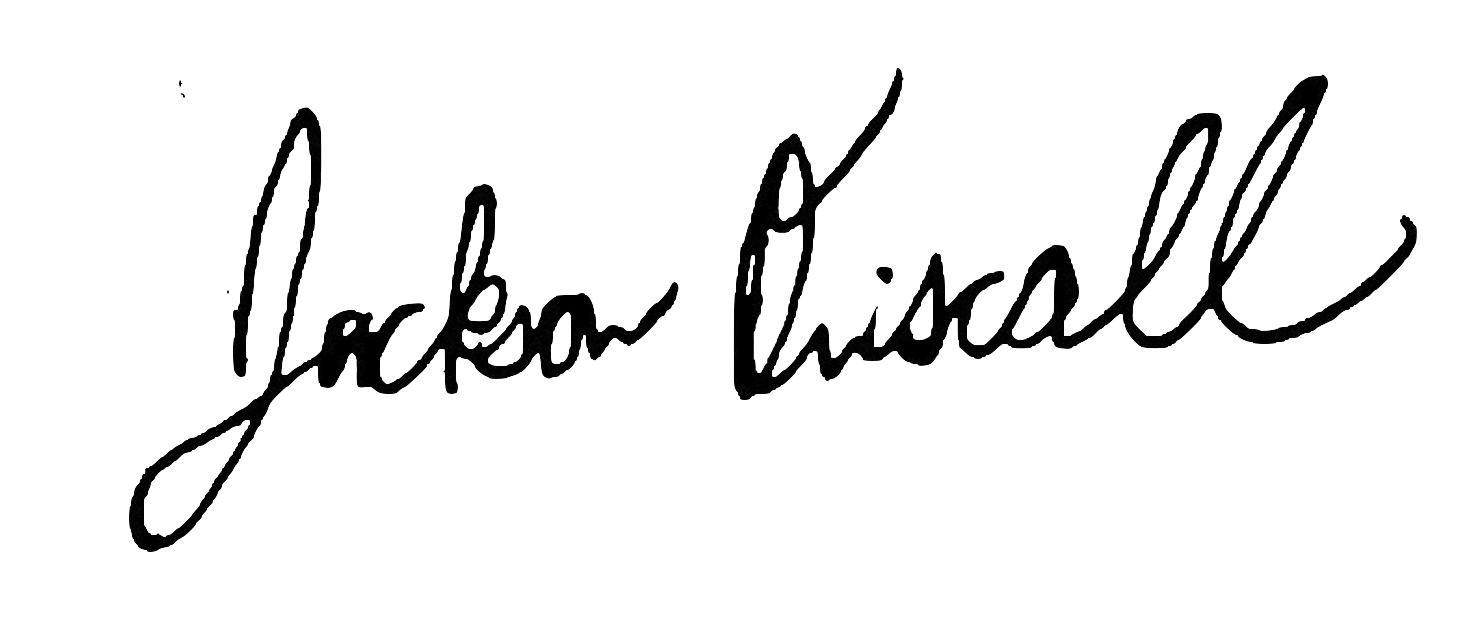 Jackson Driscall